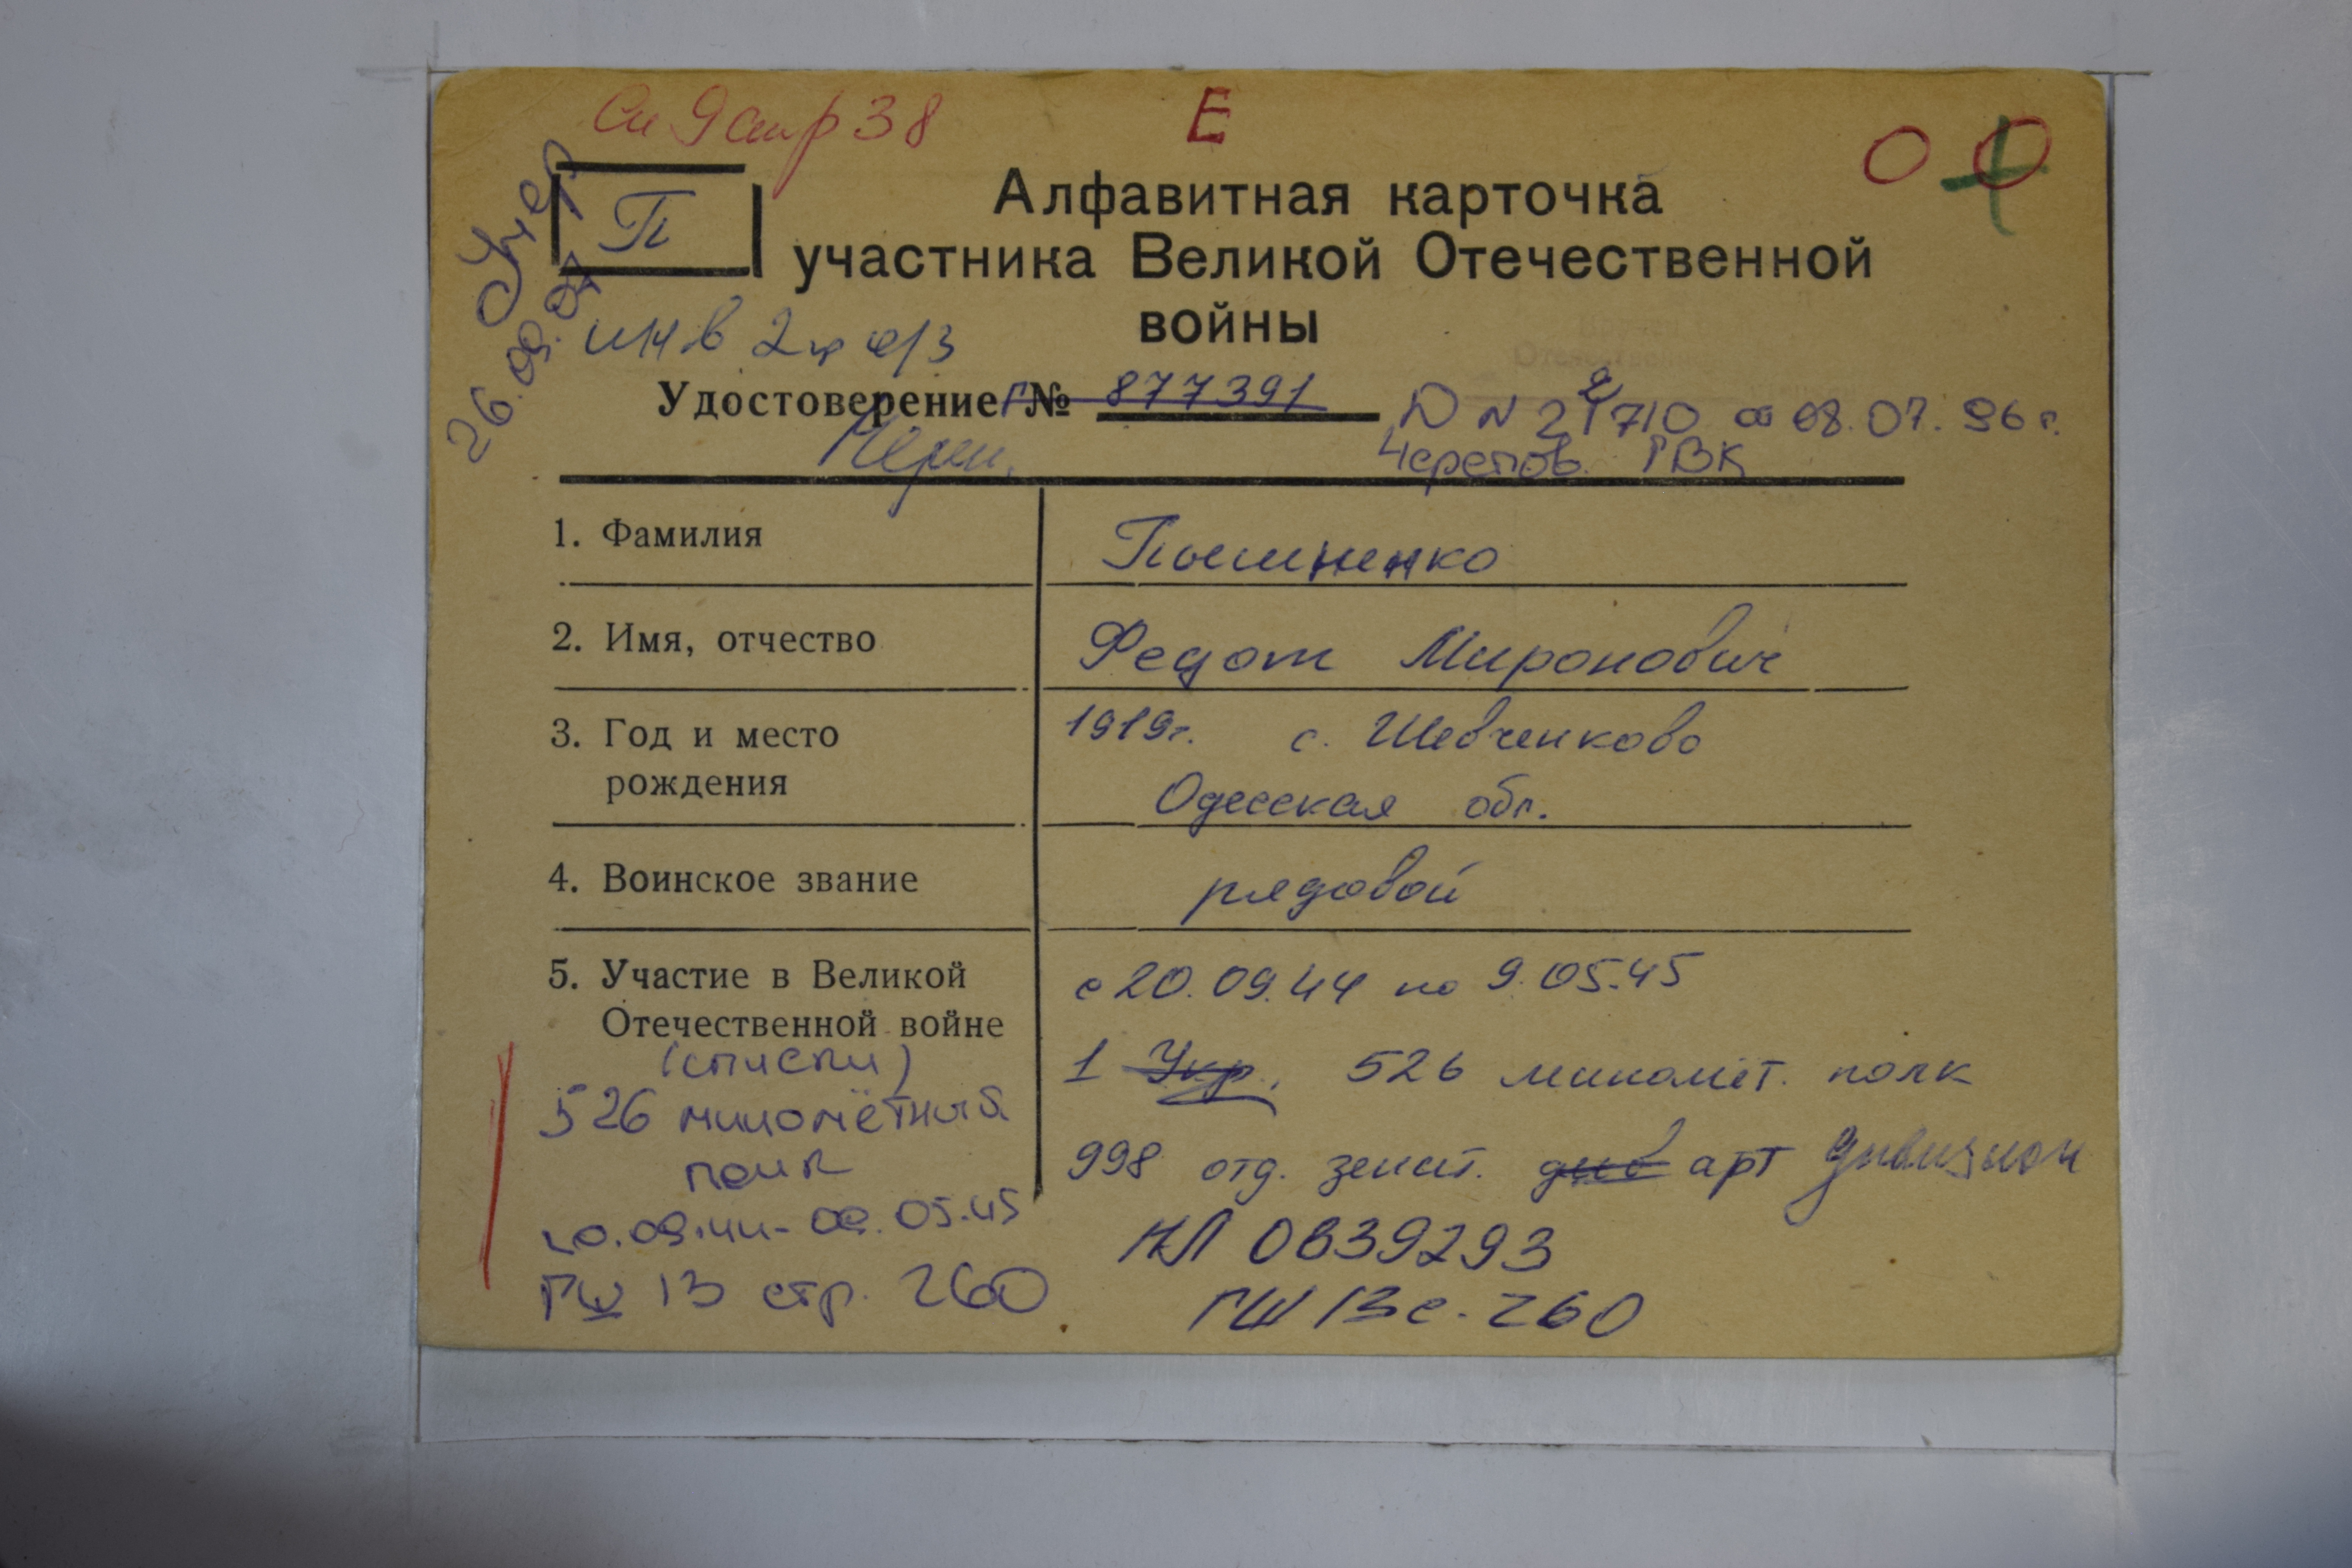 Сп 9 стр 38
Е
О О
Умер
26.09.97
П
Алфавитная карточка
участника Великой Отечественной
войны
инв 2 гр о/з
Удостоверение Г № 877391
Череп.
Черепов. ГВК
1. Фамилия
Пошиненко
2. Имя, отчество
Федот Миронович
3. Год и место
рождения
1919г. с. Шевченково
Одесская обл.
4. Воинское звание
рядовой
5. Участие в Великой
Отечественной войне
с 20.09.44 по 9.05.45
1 Укр. 526 миномёт. полк
998 отд. зенит. див арт дивизион
(списки)
526 миномётный
полк
20.09.44-09.05.45
ГШ 13 стр. 260
НЛ 0839293
ГШ 13 с. 260